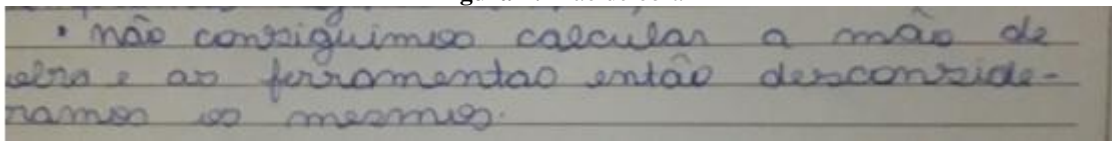 • não consiguimos calcular a mão de
obra e as ferramentas então desconside-
ramos os mesmos.